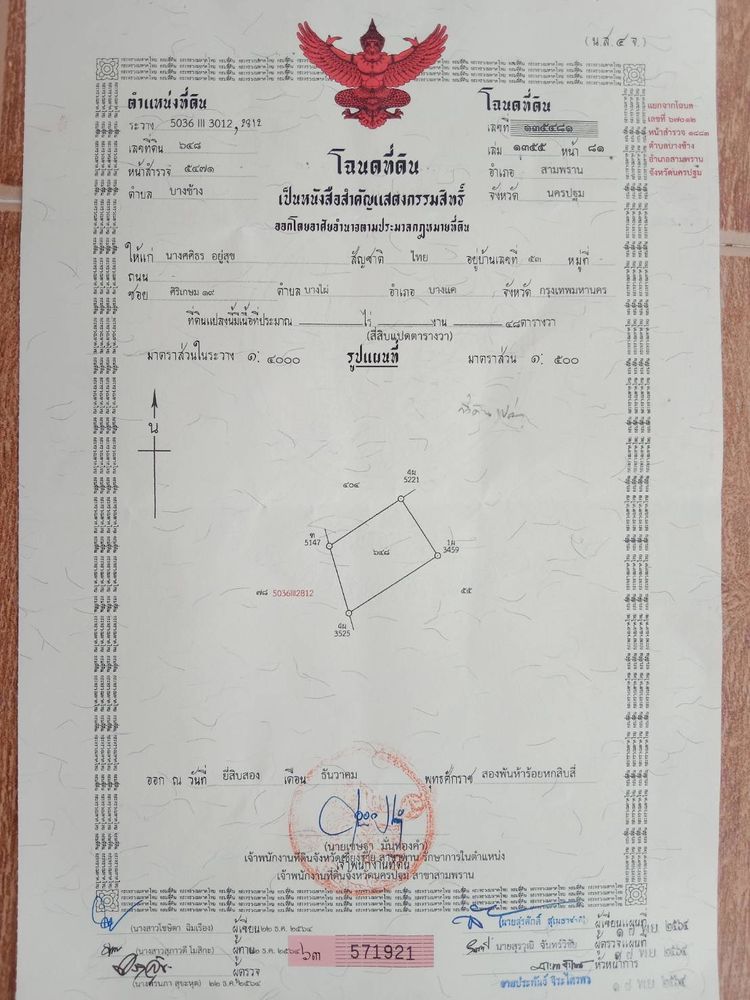 (น.ส.๔ จ.)
ตำแหน่งที่ดิน
ระวาง 5036 III 3012, 2812
เลขที่ดิน ๖๔๘
หน้าสำรวจ ๕๔๗๑
ตำบล บางช้าง
โฉนดที่ดิน
เลขที่ ๑๓๕๔๘๑
เล่ม ๑๓๕๕ หน้า ๘๑
อำเภอ สามพราน
จังหวัด นครปฐม
แยกจากโฉนด
เลขที่ ๖๗๐๑๒
หน้าสำรวจ ๑๔๘๓
ตำบลบางช้าง
อำเภอสามพราน
จังหวัดนครปฐม
โฉนดที่ดิน
เป็นหนังสือสำคัญแสดงกรรมสิทธิ์
ออกโดยอาศัยอำนาจตามประมวลกฎหมายที่ดิน
ให้แก่ นางศศิธร อยู่สุข สัญชาติ ไทย อยู่บ้านเลขที่ ๕๓ หมู่ที่
ถนน
ซอย ศิริเกษม ๑๙ ตำบล บางไผ่ อำเภอ บางแค จังหวัด กรุงเทพมหานคร
ที่ดินแปลงนี้มีเนื้อที่ประมาณ ไร่ งาน ๔๘ ตารางวา
(สี่สิบแปดตารางวา)
มาตราส่วนในระวาง ๑: ๔๐๐๐ รูปแผนที่ มาตราส่วน ๑: ๕๐๐
น
๔๐๔
4ผ
5221
ฑ
5147
๖๔๘
1ผ
3459
๗๘ 5036III2812
๕๕
4ผ
3525
ออก ณ วันที่ ยี่สิบสอง เดือน ธันวาคม พุทธศักราช สองพันห้าร้อยหกสิบสี่
(นายเชษฐา มั่นทองคำ)
เจ้าพนักงานที่ดินจังหวัดเชียงราย สาขาพาน รักษาการในตำแหน่ง
เจ้าพนักงานที่ดิน
เจ้าพนักงานที่ดินจังหวัดนครปฐม สาขาสามพราน
(นางสาวโชษิตา ฉิมเรือง) ผู้เขียน ๒๒ ธ.ค. ๒๕๖๔
(นางสาวสุภาวดี โมสิกะ) ผู้ทาน ๒๒ ธ.ค. ๒๕๖๔
ผู้ตรวจ
๒๒ ธ.ค. ๒๕๖๔
๖๓ 571921
ผู้เขียนแผนที่ ๑๗ พ.ย. ๒๕๖๔
นายสุรวุฒิ จันทร์วิชัย ผู้ตรวจแผนที่
หัวหน้าการ
๑๗ พ.ย. ๒๕๖๔